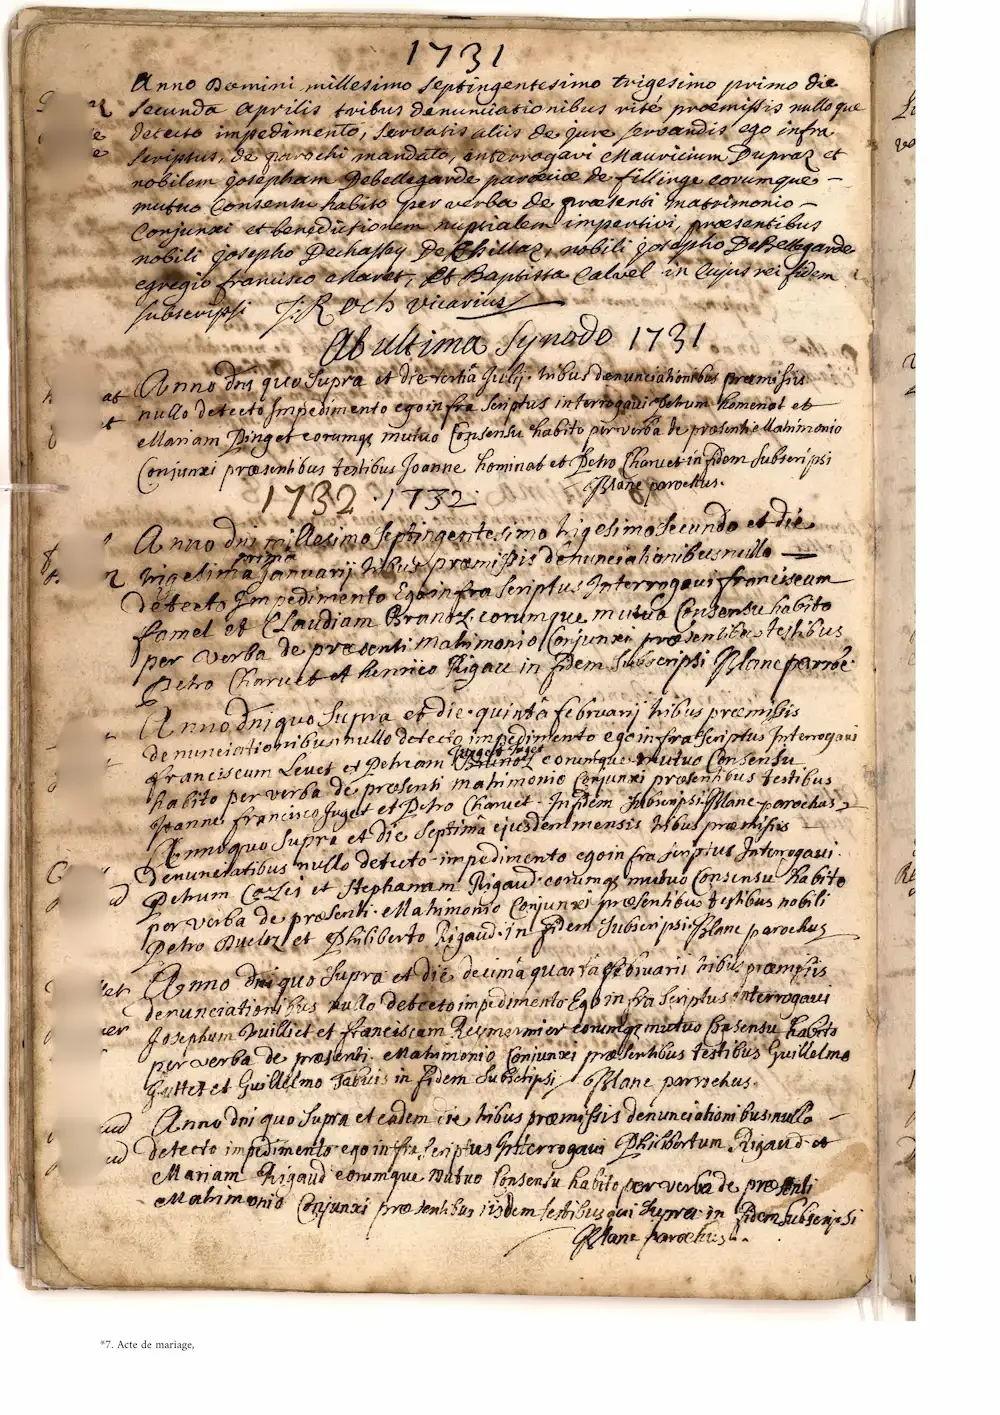 1731
Anno Domini millesimo septingentesimo trigesimo primo die
secunda aprilis tribus denunciationibus rité proemissis nulloque
detecto impedimento, servatis aliis de jure servandis ego infra
scriptus, de parochi mandato, interrogavi Mauricium Dupraz et
nobilem josepham Debellegarde paroeciae de fillinge eorumque –
mutuo Consensu habito per verba de proesenti matrimonio –
Conjunxi et benedictionem nuptialem impertivi, proesentibus
nobili josepho Dechassey De Chillaz, nobili josepho DeBellegarde
egregio francisco Maret, et Baptista Calvel in cujus rei fidem
subscripsi J: Roch vicarius
Ab ultima Synodo 1731
Anno dni quo supra et die tertiâ Julij tribus denunciationibus proemissis
nullo detecto Impedimento ego infra scriptus interrogavi petrum homenal et
Mariam Pinget eorumq mutuo Consensu habito per verba de proesenti Matrimonio
Conjunxi proesentibus testibus Joanne hominal et Petro Charvet in fidem subscripsi
Blanc parochus.
1732 . 1732
Anno dni millesimo septingentesimo trigesimo secundo et die
prima
trigesima januarij tribus proemissis denunciationibus nullo —
detecto Impedimento Ego infra scriptus Interrogavi franciscum
famel et Claudiam Brantz eorumque mutuo Consensu habito
per verba de proesenti Matrimonio Conjunxi proesentibus testibus
Petro Charvet et henrico Rigau in fidem subscripsi Blanc
Anno dni quo supra et die quinta februarij tribus proemissis
denunciationibus nullo detecto impedimento ego infra scriptus Interrogavi
Juget
franciscum Levet et Petriam eorumque mutuo Consensu
habito per verba de proesenti matrimonio Conjunxi proesentibus testibus
Joanne francisco Juget et Petro Charvet. In fidem subscripsi Blanc parochus
Anno quo supra et die septimâ ejusdem mensis tribus proemissis
denunciatibus nullo detecto impedimento ego infra scriptus Interrogavi
Petrum et Stephanam Rigaud eorumq mutuo Consensu habito
per verba de proesenti Matrimonio Conjunxi proesentibus testibus nobili
Petro Ducloz et Philiberto Rigaud in fidem subscripsi Blanc parochus
Anno dni quo supra et die decimâ quarta februarii tribus proemissis
denunciationibus nullo detecto impedimento Ego infra scriptus interrogavi
Josephum Vuilliet et franciscam Reymermier eorumq mutuo Consensu habito
per verba de proesenti Matrimonio Conjunxi proesentibus testibus Guillelmo
Guttet et Guillelmo Tabuis in fidem subscripsi Blanc parrochus
Anno dni quo supra et eadem die tribus proemissis denunciationibus nullo –
detecto impedimento ego infra scriptus Interrogavi Philibertum Rigaud et
Mariam Rigaud eorumque mutuo Consensu habito per verba de proesenti
Matrimonio Conjunxi proesentibus iisdem testibus qui supra in fidem subscripsi
Blanc parochus.
*7. Acte de mariage,